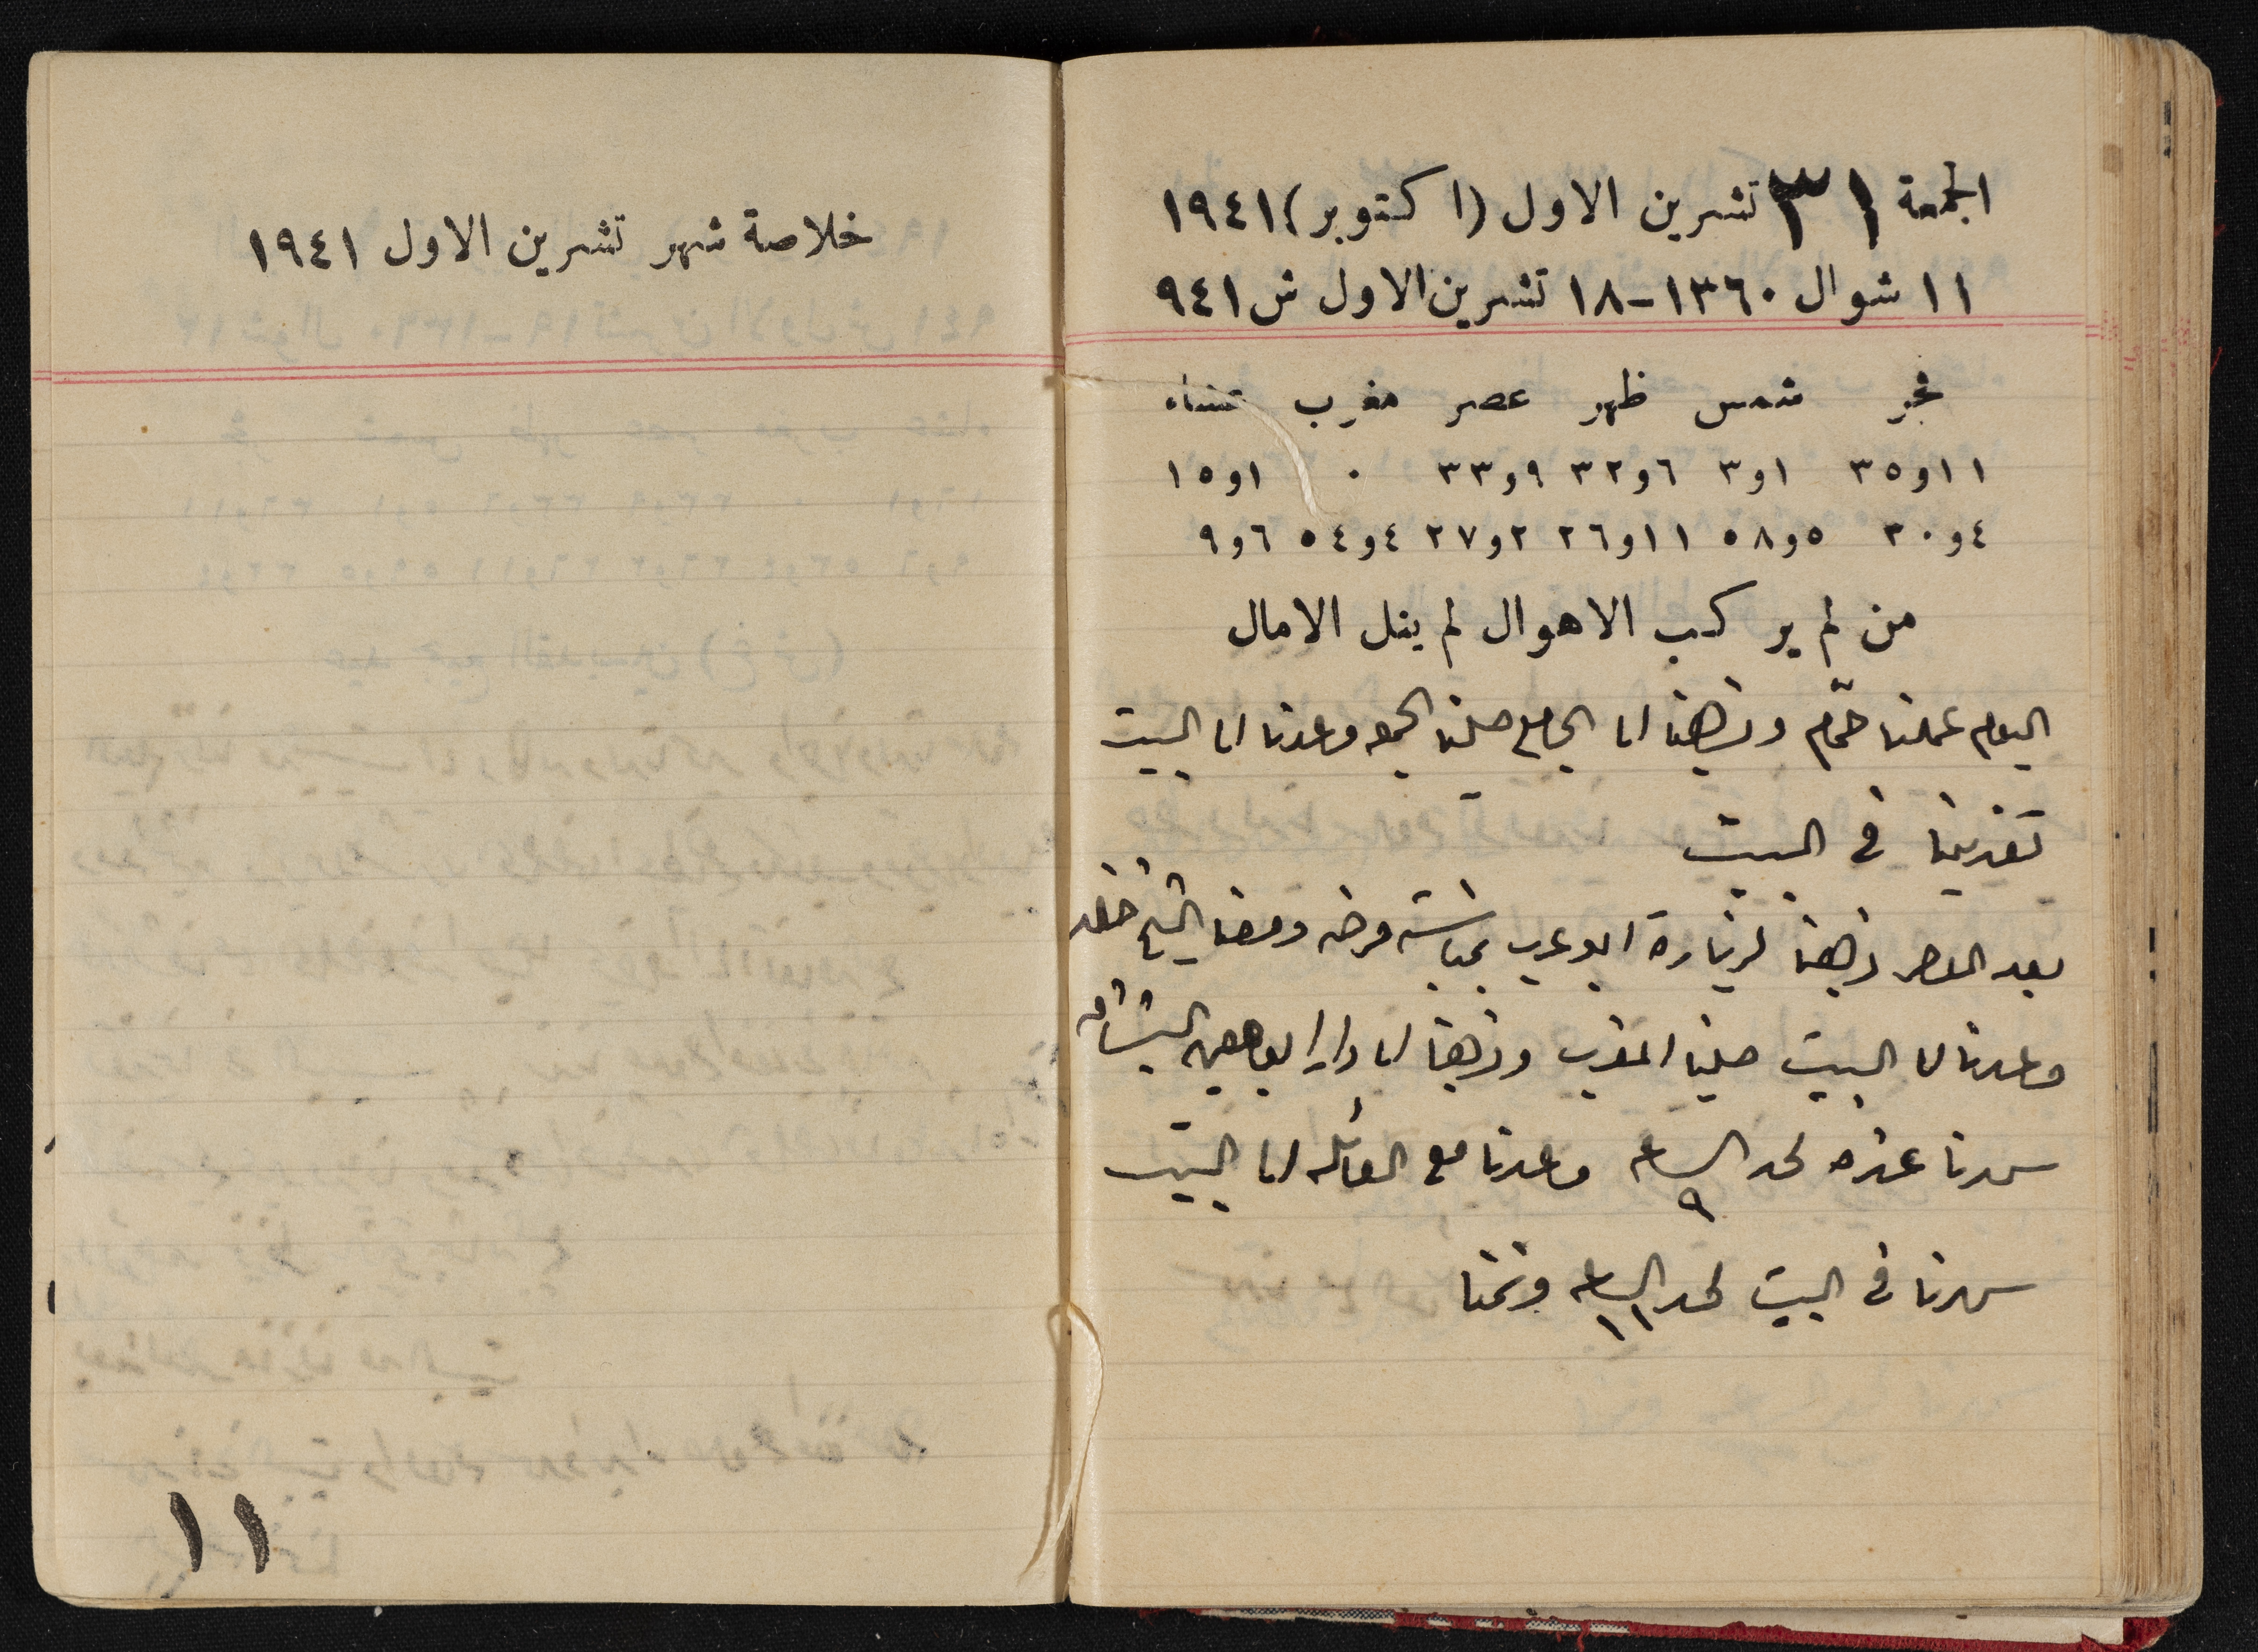 الجمعة ٣١ تشرين الاول (اكتوبر) ١٩٤١
١١ شوال ١٣٦٠-١٨ تشرين الاول ش ٩٤١
فجر شمس ظهر عصر مغرب عشاء
١١و٣٥ ١و٣ ٦و٣٢ ٩و٣٣ ٠ ١و١٥
٤و٣٠ ٥و٥٨ ١١و٢٦ ٢و٢٧ ٤و٥٤ ٦و٩
من لم يركب الاهوال لم ينل الامال
اليوم عملنا حمّام وذهبنا الى الجامع صلينا الجمعه وعدنا الى البيت
تغدينا في البيت
بعد العصر ذهبنا لزيارة ابو عرب مرضه ومعنا الشيخ
وعدنا الى البيت صلينا المغرب وذهبنا الى دار
سهرنا عنده لحد الساعه ٩ وعدنا مع العائله الى البيت
سهرنا في البيت لحد الساعه ١١ ونمنا
خلاصة شهر تشرين الاول ١٩٤١
١١